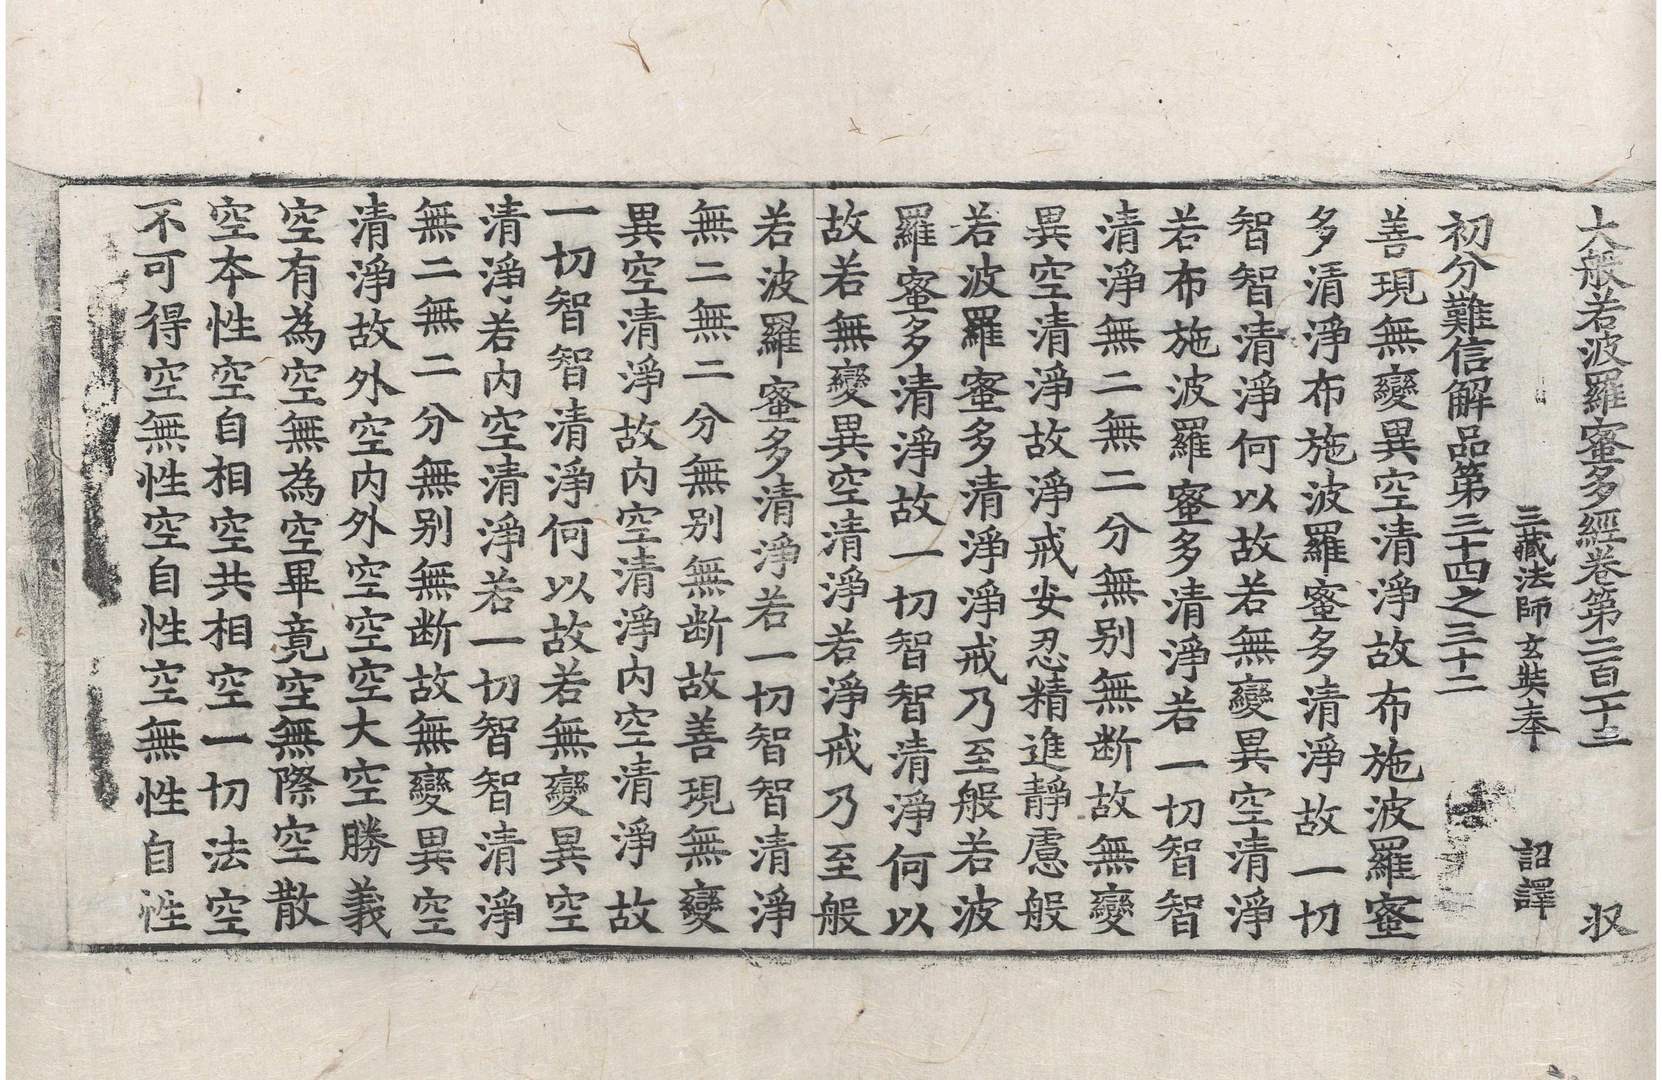 大般若波羅蜜多經卷第二百一十三　収
三藏法師玄奘奉　詔譯
初分難信解品第三十四之三十二
善現無變異空清淨故布施波羅蜜
多清淨布施波羅蜜多清淨故一切
智智清淨何以故若無變異空清淨
若布施波羅蜜多清淨若一切智智
清淨無二無二分無別無断故無變
異空清淨故淨戒安忍精進靜慮般
若波羅蜜多清淨淨戒乃至般若波
羅蜜多清淨故一切智智清淨何以
故若無變異空清淨若淨戒乃至般
若波羅蜜多清淨若一切智智清淨
無二無二分無別無断故善現無變
異空清淨故内空清淨内空清淨故
一切智智清淨何以故若無變異空
清淨若内空清淨若一切智智清淨
無二無二分無別無断故無變異空
清淨故外空内外空空空大空勝義
空有為空無為空畢竟空無際空散
空本性空自相空共相空一切法空
不可得空無性空自性空無性自性